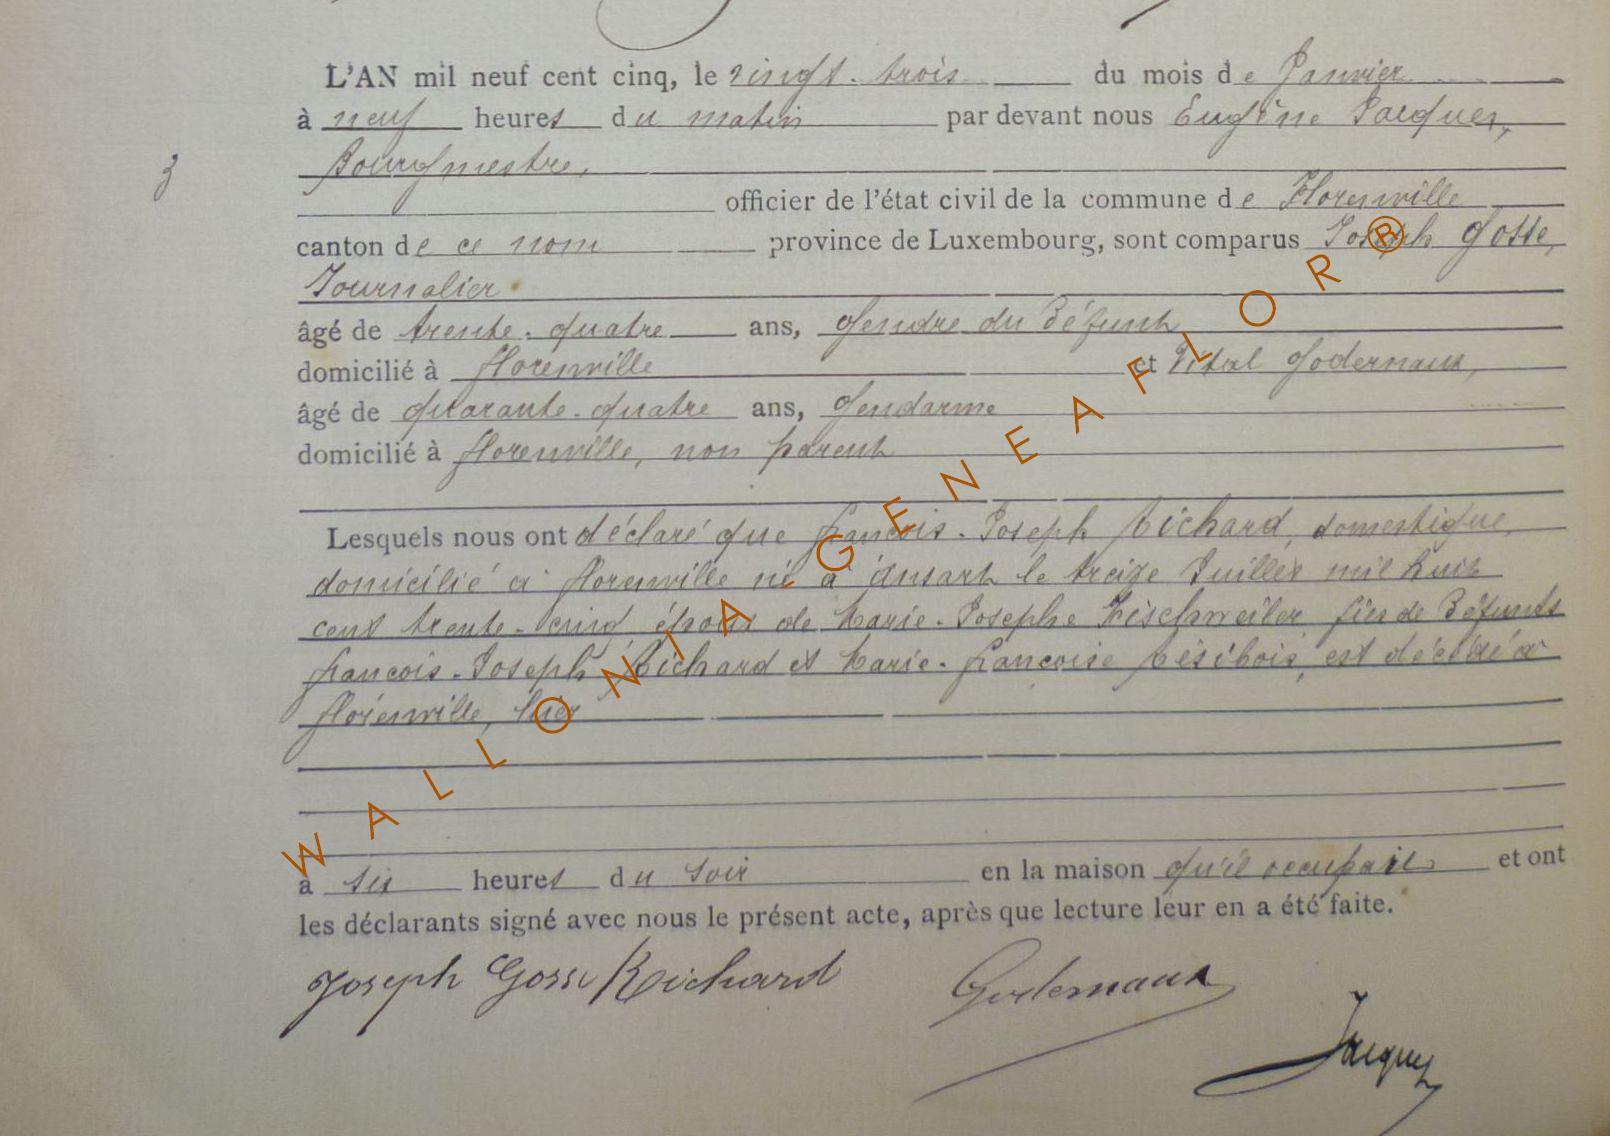 L'AN mil neuf cent cinq, le vingt-trois du mois de Janvier
à neuf heures du matin par devant nous Eugène Jacques,
Bourgmestre,
3
officier de l'état civil de la commune de Florenville
canton de ce nom province de Luxembourg, sont comparus Joseph Gosse,
Journalier
âgé de trente-quatre ans, gendre du défunt
domicilié à Florenville et Vital Godernaux,
âgé de quarante-quatre ans, Gendarme
domicilié à Florenville, non parent
Lesquels nous ont déclaré que François-Joseph Richard, domestique,
domicilié à Florenville né à Ansart le treize Juillet mil huit
cent trente-cinq, époux de Marie-Josephe fils de défunts
François-Joseph Richard et Marie-Françoise est décédé à
Florenville, hier
à six heures du soir en la maison qu'il occupait et ont
les déclarants signé avec nous le présent acte, après que lecture leur en a été faite.
Joseph Gosse Richard Godernaux
Jacques
WALLONIA GENEAFLOR®